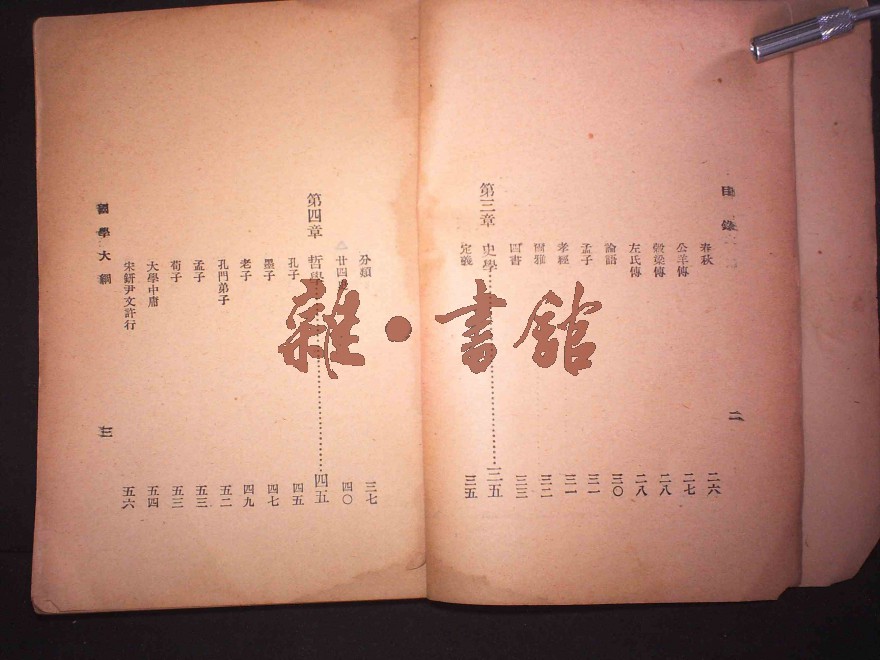 目錄
春秋 二六
公羊傳 二七
穀梁傳 二八
左氏傳 二八
論語 三〇
孟子 三一
孝經 三一
爾雅 三二
四書 三三
第三章 史學 三五
定義 三五
二
分類 三七
廿四 四〇
第四章 哲學 四五
孔子 四五
墨子 四七
老子 四九
孔門弟子 五二
孟子 五三
荀子 五三
大學中庸 五四
宋銒尹文許行 五六
國學大綱
三
雜·書館